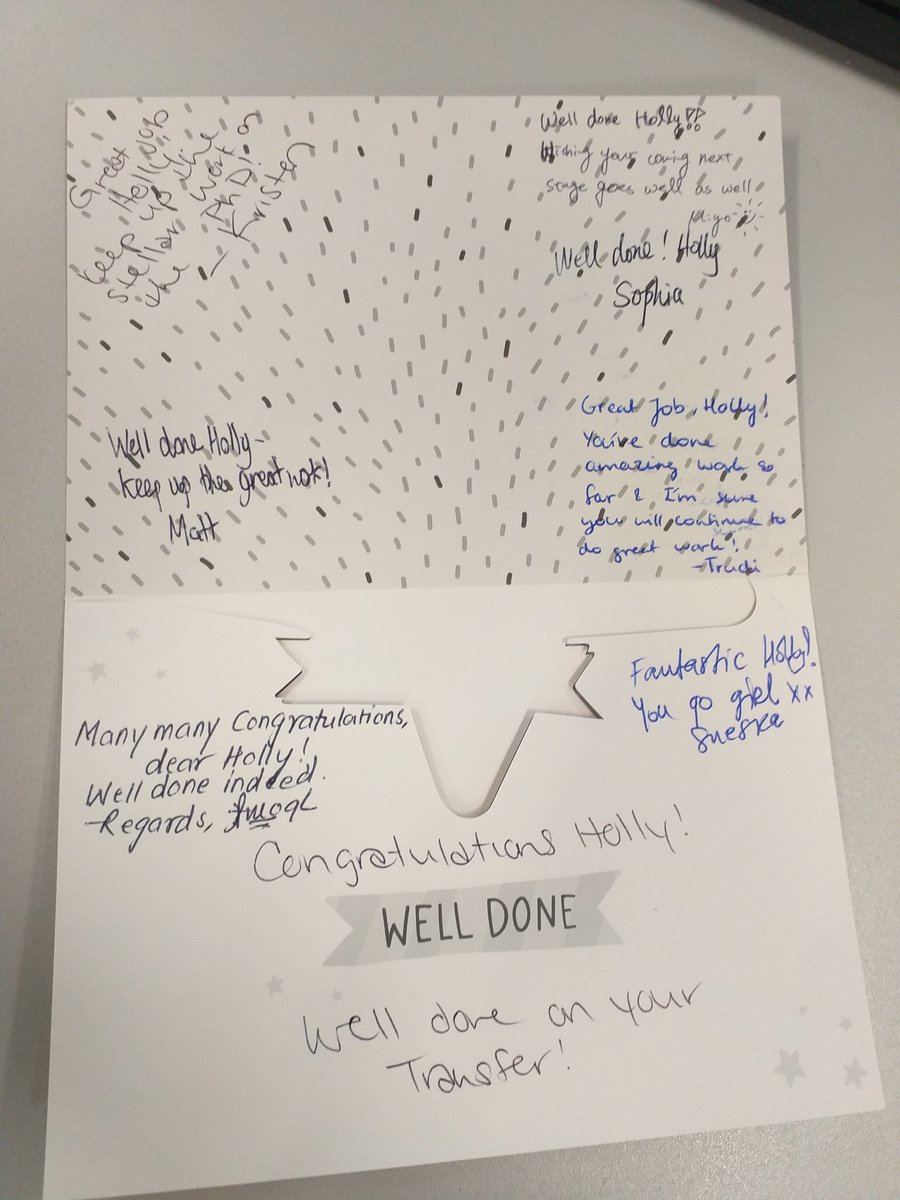 Great job
Holly,
keep up the
stellar work on
the PhD!
— Kristen
Well done Holly!!
Wishing your coming next
stage goes well as well
Miyo
Well done! Holly
Sophia
Well done Holly -
keep up the great work!
Matt
Great Job, Holly!
You've done
amazing work so
far & I'm sure
you will continue to
do great work!
-Trudi
Fantastic Holly!
You go girl xx
Many many Congratulations,
dear Holly!
Well done indeed.
Regards,
Congratulations Holly!
WELL DONE
Well done on your
Transfer!